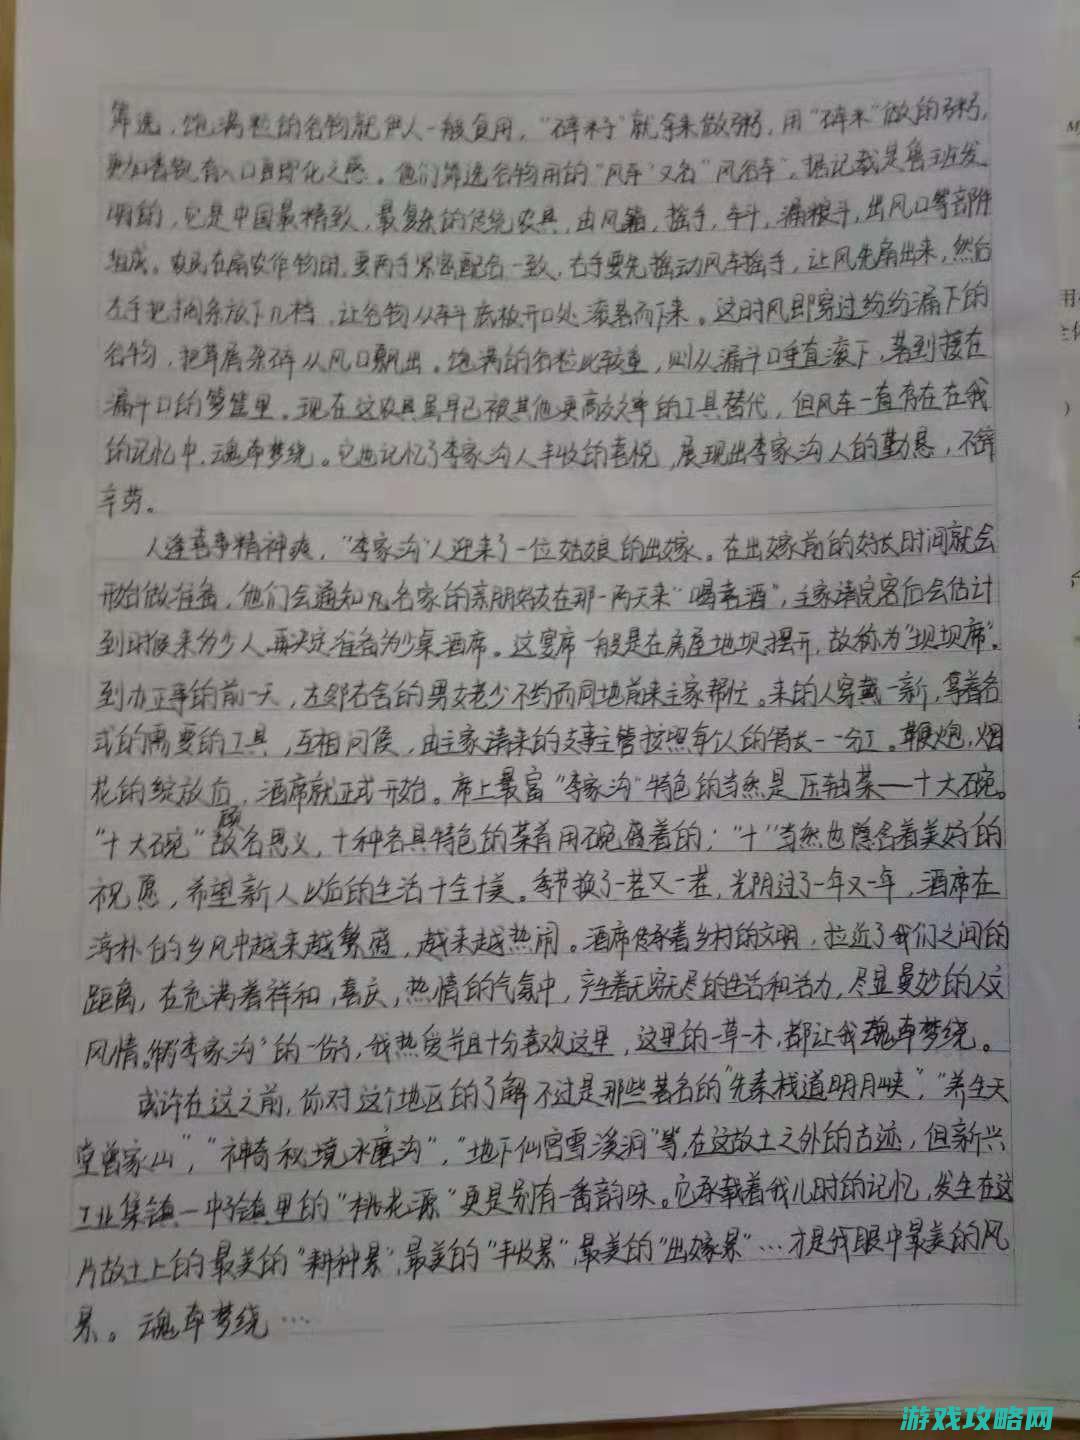 筛选，饱满粒的谷物就供人一般食用，“碎籽”就拿来做粥，用“碎米”做的粥，
更加香甜有入口即化之感。他们筛选谷物用的“风车”又名“风谷车”。据记载是鲁班发
明的，它是中国最精致，最复杂的传统农具，由风箱，摇手，车斗，漏粮斗，出风口等部件
组成。农民在扇农作物时，要两手紧密配合一致，右手要先摇动风车摇手，让风先扇出来，然后
左手把调条放下几档，让谷物从车斗底板开口处滚落而下来。这时风即穿过纷纷漏下的
谷物，把草屑杂碎从风口飘出。饱满的谷粒比较重，则从漏斗口垂直滚下，落到接在
漏斗口的箩筐里。现在这农具虽早已被其他更高效率的工具替代，但风车一直存在在我
的记忆中，魂牵梦绕。它也记忆了李家沟人丰收的喜悦，展现出李家沟人的勤恳，不辞
辛劳。
人逢喜事精神爽，“李家沟”人迎来了一位姑娘的出嫁。在出嫁前的好长时间就会
开始做准备，他们会通知几名家的亲朋好友在那一两天来“喝喜酒”，主家请完客后会估计
到时候来多少人再决定准备多少桌酒席。这宴席一般是在房屋地坝摆开，故称为“坝坝席”。
到办正事的前一天，左邻右舍的男女老少不约而同地前来主家帮忙。来的人穿戴一新，拿着各
式的需要的工具，互相问侯，由主家请来的支事主管按照每个人的特长一一分工。鞭炮，烟
花的绽放后，酒席就正式开始。席上最富“李家沟”特色的当然是压轴菜——十大碗。
“十大碗”顾名思义，十种各具特色的菜肴用碗盛着的；“十”当然也隐含着美好的
祝愿，希望新人以后的生活十全十美。季节换了一茬又一茬，光阴过了一年又一年，酒席在
淳朴的乡风中越来越繁盛，越来越热闹。酒席传承着乡村的文明，拉近了我们之间的
距离，在充满着祥和，喜庆，热情的气氛中，产生着无穷无尽的生活和活力，尽显曼妙的人文
风情。“李家沟”的一份子，我热爱并且十分喜欢这里，这里的一草一木，都让我魂牵梦绕。
或许在这之前，你对这个地区的了解不过是那些著名的“先秦栈道明月峡”，“养生天
堂曾家山”，“神奇秘境水磨沟”，“地下仙宫雪溪洞”等，在这故土之外的古迹，但新兴
工业集镇——中子镇里的“桃花源”更是别有一番韵味。它承载着我儿时的记忆，发生在这
片故土上的最美的“耕种景”，最美的“丰收景”，最美的“出嫁景”…才是我眼中最美的风
景。魂牵梦绕…
游戏攻略网